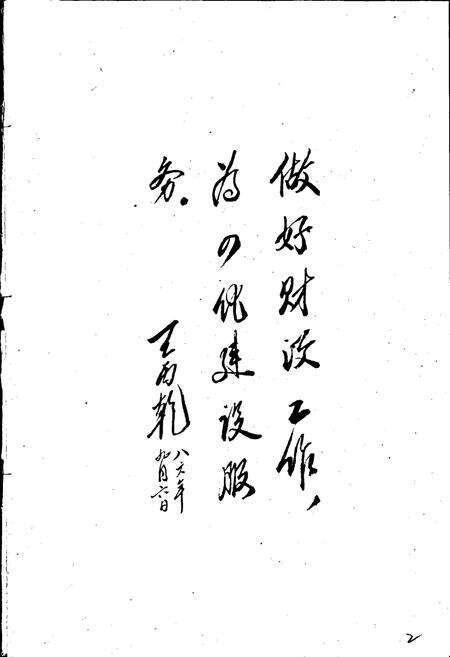 做好财政工作，
为四化建设服
务。
王丙乾
八六年
九月六日
2